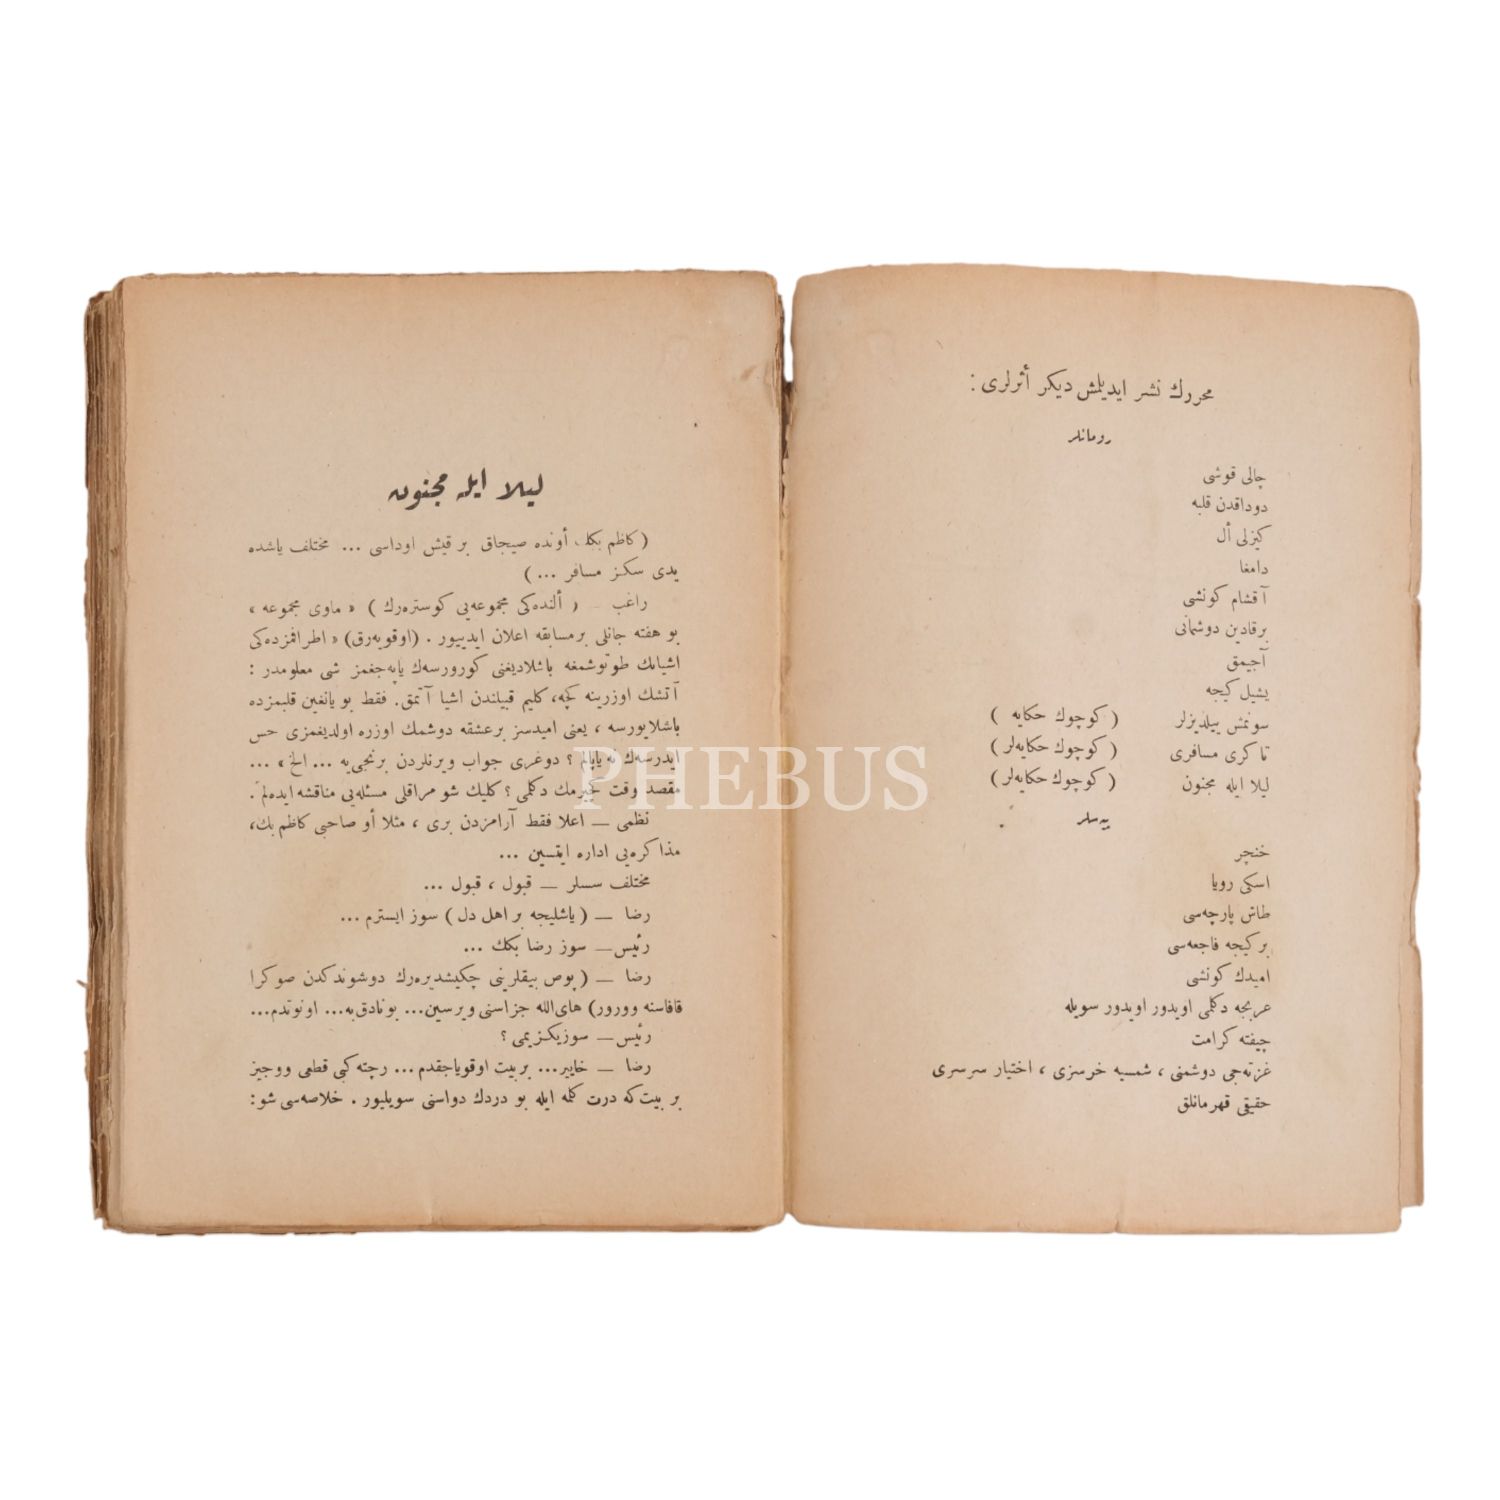 محررك نشر ايديلمش ديكر أثرلرى :
رومانلر
چالى قوشى
دوداقدن قلبه
كيزلى أل
دامغا
آقشام كونشى
برقادين دوشمانى
آجيمق
يشيل كيجه
سونمش ييلديزلر ( كوچوك حكايه )
تاكرى مسافرى ( كوچوك حكايه‌لر )
ليلا ايله مجنون ( كوچوك حكايه‌لر )
پيه‌سلر
خنچر
اسكى رويا
طاش پارچه‌سى
بر كيجه فاجعه‌سى
اميدك كونشى
عربجه دكلمى اويدور اويدور سويله
چيفته كرامت
غزته‌جى دوشمنى ، شمسيه خرسزى ، اختيار سرسرى
حقيقى قهرمانلق
ليلا ايله مجنون
( كاظم بكك أونده صيجاق بر قيش اوداسى ... مختلف ياشده
يدى سكز مسافر ... )
راغب _ ( ألنده‌كى مجموعه‌يى كوستره‌رك ) « ماوى مجموعه »
بو هفته جانلى برمسابقه اعلان ايدييور . (اوقويه‌رق) « اطرافمزده‌كى
اشيانك طوتوشمغه باشلاديغنى كورورسه‌ك ياپه‌جغمز شى معلومدر :
آتشك اوزرينه كچه، كليم قبيلندن اشيا آتمق. فقط بو يانغين قلبمزده
باشلايورسه ، يعنى اميدسز برعشقه دوشمك اوزره اولديغمزى حس
ايدرسه‌ك نه ياپالم ؟ دوغرى جواب ويرنلردن برنجى‌يه ... الخ » ...
مقصد وقت كچيرمك دكلمى ؟ كليك شو مراقلى مسئله‌يى مناقشه ايده‌لم .
نظمى — اعلا فقط آرامزدن برى ، مثلا أو صاحبى كاظم بك،
مذاكره‌يى اداره ايتسين ...
مختلف سسلر — قبول ، قبول ...
رضا — ( ياشليجه بر اهل دل ) سوز ايسترم ...
رئيس — سوز رضا بكك ...
رضا — (پوص بيقلرينى چكيشديره‌رك دوشوندكدن صوكرا
قافاسنه وورور) هاى‌الله جزاسنى ويرسين... بونادق‌به... اونوتدم...
رئيس — سوزيكزيمى ؟
رضا — خايير... بربيت اوقوياجقدم... رچته كبى قطعى ووجيز
بر بيت‌كه درت كلمه ايله بو دردك دواسنى سويليور . خلاصه‌سى شو:
PHEBUS